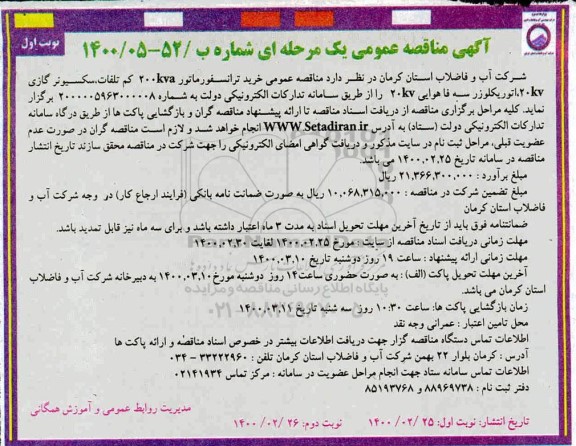 نوبت اول
آگهی مناقصه عمومی یک مرحله ای شماره ب /۵۲-۱۴۰۰/۰۵
شرکت آب و فاضلاب استان کرمان در نظر دارد مناقصه عمومی خرید ترانسفورماتور ۲۰۰kva کم تلفات،سکسیونر گازی
۲۰kv،اتوریکلوزر سه فا هوایی ۲۰kv را از طریق سامانه تدارکات الکترونیکی دولت به شماره ۲۰۰۰۰۰۵۹۶۳۰۰۰۰۰۸ برگزار
نماید. کلیه مراحل برگزاری مناقصه از دریافت اسناد مناقصه تا ارائه پیشنهاد مناقصه گران و بازگشایی پاکت ها از طریق درگاه سامانه
تدارکات الکترونیکی دولت (ستاد) به آدرس WWW.Setadiran.ir انجام خواهد شد و لازم است مناقصه گران در صورت عدم
عضویت قبلی، مراحل ثبت نام در سایت مذکور و دریافت گواهی امضای الکترونیکی را جهت شرکت در مناقصه محقق سازند تاریخ انتشار
مناقصه در سامانه تاریخ ۱۴۰۰.۰۲.۲۵ می باشد.
مبلغ برآورد : ۲۱,۳۶۶,۳۰۰,۰۰۰ ریال
مبلغ تضمین شرکت در مناقصه : ۱۰,۰۶۸,۳۱۵,۰۰۰ ریال به صورت ضمانت نامه بانکی (فرایند ارجاع کار) در وجه شرکت آب و
فاضلاب استان کرمان
ضمانتنامه فوق باید از تاریخ آخرین مهلت تحویل اسناد به مدت ۳ ماه اعتبار داشته باشد و برای سه ماه نیز قابل تمدید باشد.
مهلت زمانی دریافت اسناد مناقصه از سایت : مورخ ۱۴۰۰.۰۲.۲۵ لغایت ۱۴۰۰.۰۲.۳۰
مهلت زمانی ارائه پیشنهاد : ساعت ۱۹ روز دوشنبه تاریخ ۱۴۰۰.۰۳.۱۰
آخرین مهلت تحویل پاکت (الف) : به صورت حضوری ساعت ۱۴ روز دوشنبه مورخ ۱۴۰۰.۰۳.۱۰ به دبیرخانه شرکت آب و فاضلاب
استان کرمان می باشد.
زمان بازگشایی پاکت ها: ساعت ۱۰:۳۰ روز سه شنبه تاریخ ۱۴۰۰.۰۳.۱۱
محل تامین اعتبار : عمرانی وجه نقد
اطلاعات تماس دستگاه مناقصه گزار جهت دریافت اطلاعات بیشتر در خصوص اسناد مناقصه و ارائه پاکت ها
آدرس : کرمان بلوار ۲۲ بهمن شرکت آب و فاضلاب استان کرمان تلفن : ۳۳۲۲۲۹۶۰ - ۰۳۴
اطلاعات تماس سامانه ستاد جهت انجام مراحل عضویت در سامانه : مرکز تماس ۰۲۱۴۱۹۳۴
دفتر ثبت نام : ۸۸۹۶۹۷۳۸ و ۸۵۱۹۳۷۶۸
مدیریت روابط عمومی و آموزش همگانی
تاریخ انتشار: نوبت اول: ۲۵ /۰۲/ ۱۴۰۰ نوبت دوم: ۲۶ /۰۲/ ۱۴۰۰